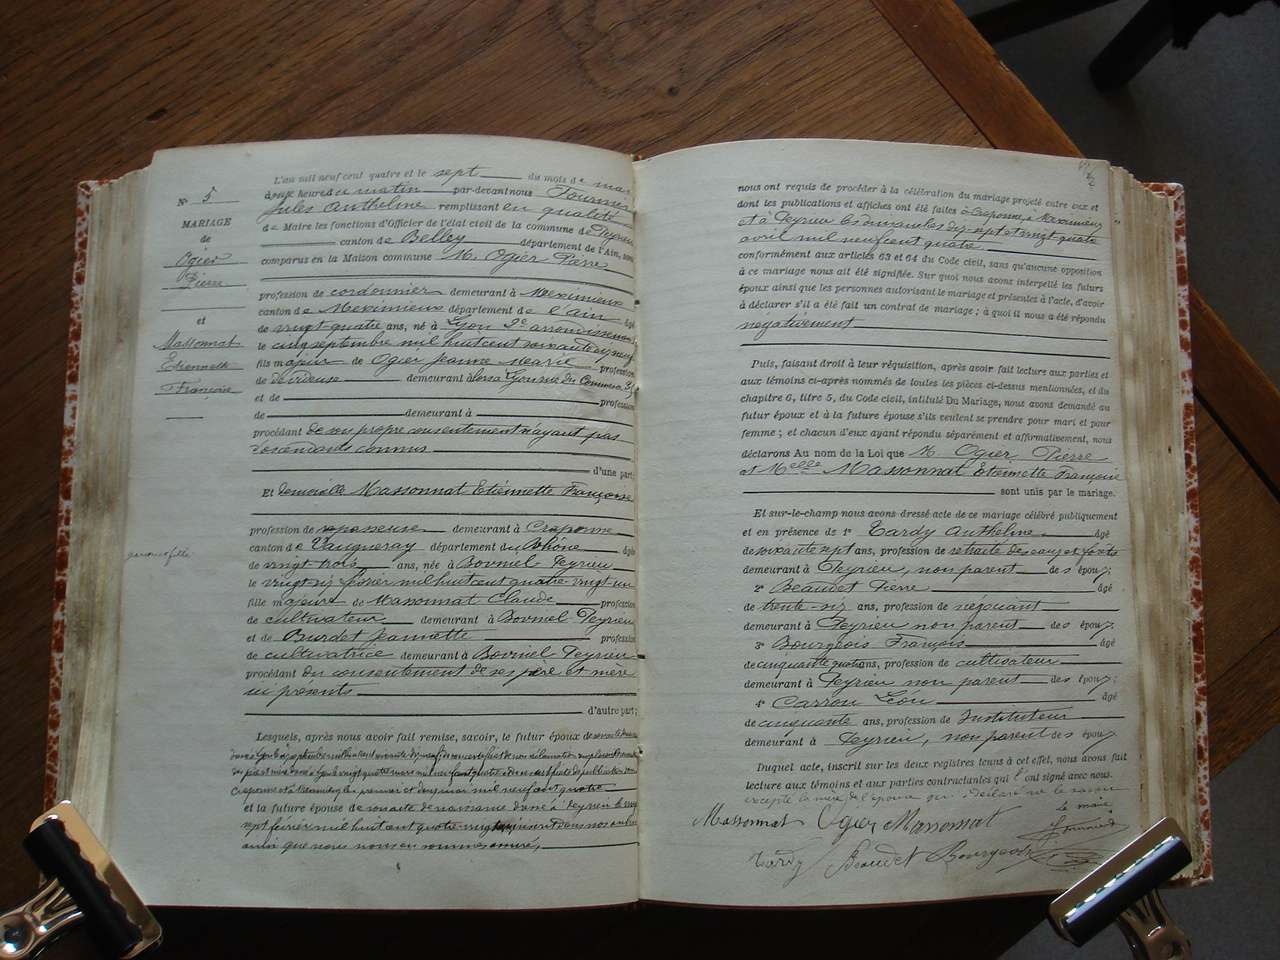 L'an mil neuf cent quatre et le sept du mois de mai
à heures du matin par-devant nous Fournier
Jules Anthelme remplissant en qualité
de Maire les fonctions d'Officier de l'état civil de la commune de Peyrieu
canton de Belley département de l'Ain, sont
comparus en la Maison commune M. Ogier Pierre
N° 5
MARIAGE
de
Ogier
Pierre
et
Massonnat
Etiennette
Françoise
profession de cordonnier demeurant à Meximieux
canton de Meximieux département de l'ain âgé
de vingt quatre ans, né à Lyon 2e arrondissement
le cinq septembre mil huit cent soixante dix neuf
fils majeur de Ogier Jeanne Marie profession
de dévideuse demeurant à Lyon rue du Commerce
et de profession
de demeurant à
procédant de son propre consentement n'ayant pas
d'ascendants connus
d'une part;
Et demoiselle Massonnat Etiennette Françoise
profession de repasseuse demeurant à Craponne
canton de Vaugneray département du Rhône âgée
de vingt trois ans, née à Bovinel Peyrieu
le vingt six février mil huit cent quatre-vingt-un
fille majeure de Massonnat Claude profession
de cultivateur demeurant à Bovinel Peyrieu
et de Burdet Jeannette profession
de cultivatrice demeurant à Bovinel Peyrieu
procédant du consentement de ses père et mère
ici présents
d'autre part;
Lesquels, après nous avoir fait remise, savoir, le futur époux de
mil neuf cent quatre
et la future épouse de son acte de naissance dressé à Peyrieu le vingt
sept février mil huit cent quatre-vingt inscrit dans nos archives
ainsi que nous nous en sommes assuré,
nous ont requis de procéder à la célébration du mariage projeté entre eux et
dont les publications et affiches ont été faites à Craponne, à Meximieux
et à Peyrieu les dimanches dix sept et vingt quatre
avril mil neuf cent quatre
conformément aux articles 63 et 64 du Code civil, sans qu'aucune opposition
à ce mariage nous ait été signifiée. Sur quoi nous avons interpellé les futurs
époux ainsi que les personnes autorisant le mariage et présentes à l'acte, d'avoir
à déclarer s'il a été fait un contrat de mariage ; à quoi il nous a été répondu
négativement
Puis, faisant droit à leur réquisition, après avoir fait lecture aux parties et
aux témoins ci-après nommés de toutes les pièces ci-dessus mentionnées, et du
chapitre 6, titre 5, du Code civil, intitulé Du Mariage, nous avons demandé au
futur époux et à la future épouse s'ils veulent se prendre pour mari et pour
femme ; et chacun d'eux ayant répondu séparément et affirmativement, nous
déclarons Au nom de la Loi que M. Ogier Pierre
et Melle Massonnat Etiennette Françoise
sont unis par le mariage.
Et sur-le-champ nous avons dressé acte de ce mariage célébré publiquement
et en présence de 1° Tardy Anthelme âgé
de soixante sept ans, profession de retraité des eaux et forêts
demeurant à Peyrieu, non parent des époux;
2° Beaudet Pierre âgé
de trente-six ans, profession de négociant
demeurant à Peyrieu non parent des époux;
3° Bourgeois François âgé
de cinquante quatre ans, profession de cultivateur
demeurant à Peyrieu non parent des époux;
4° Carron Léon âgé
de cinquante ans, profession de Instituteur
demeurant à Peyrieu, non parent des époux;
Duquel acte, inscrit sur les deux registres tenus à cet effet, nous avons fait
lecture aux témoins et aux parties contractantes qui l'ont signé avec nous.
excepté la mère de l'épouse qui a déclaré ne le savoir
Le maire
Massonnat Ogier Massonnat Fournier
Tardy Beaudet Bourgeois